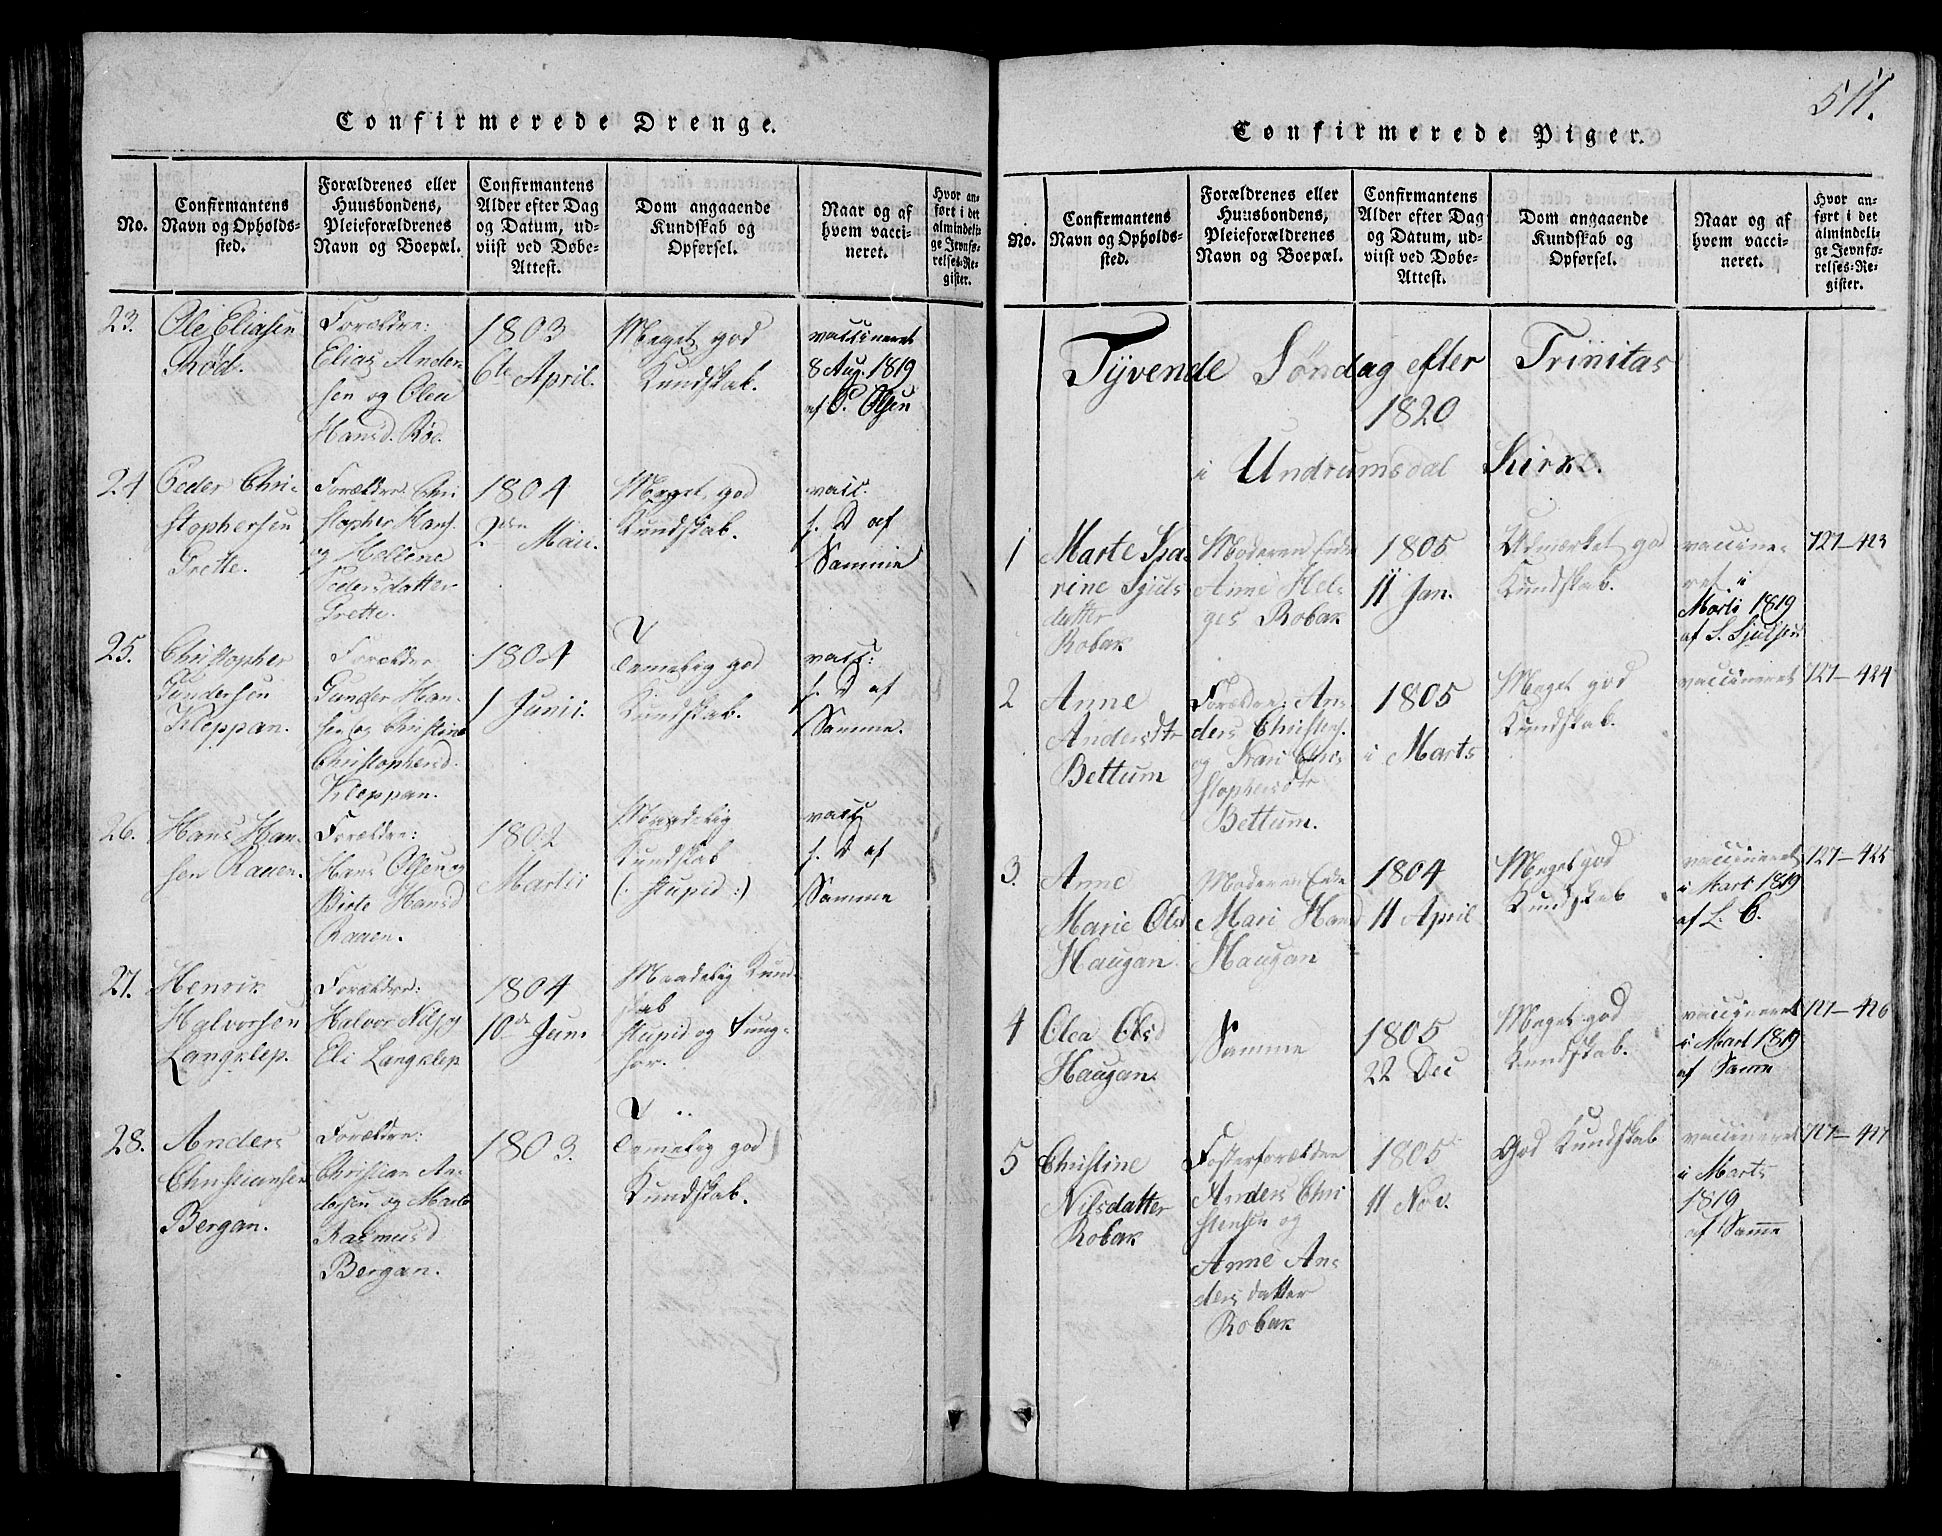 Confirmerede Drenge.
No.
Confirmantens
Navn og Opholds-
sted.
Forældrenes eller
Huusbondens,
Pleieforældrenes
Navn og Boepæl.
Confirmantens
Alder efter Dag
og Datum, ud-
viist ved Døbe-
Attest.
Dom angaaende
Kundskab og
Opførsel.
Naar og af
hvem vacci-
neret.
Hvor an-
ført i det
almindeli-
ge Jevnfø-
relses-Re-
gister.
23.
Ole Eliasen
Rød.
Forældre:
Elias Ander-
sen og Olea
Hansd. Rød.
1803
6te April.
Meget god
Kundskab.
vaccineret
8 Aug. 1819
af P. Olsen
24
Peder Chri-
stophersen
Grette.
Forældre: Chri
stopher Hans.
og Hellene
Pedersdatter
Grette.
1804
2den Maii.
Meget god
Kundskab.
vacc.
s. D af
Samme
25.
Christopher
Gundersen
Kleppan.
Forældre
Gunder Han-
sen og Christine
Christophersd.
Kleppan.
1804
1 Junii.
Temmelig god
Kundskab.
vacc:
s. D af
Samme.
26.
Hans Han-
sen Rauen.
Forældre:
Hans Olsen og
Birte Hansd
Rauen.
1802
Martii
Maadelig
Kundskab
(: stupid :)
vacc
s. D af
Samme
27.
Henrik
Halvorsen
Langklep.
Forældre:
Halvor Nils. og
Eli Langklep
1804
10de Jun.
Maadelig Kund-
skab
stupid og tung-
hør.
28.
Anders
Christiansen
Bergan.
Forældre:
Christian An-
dersen og Marte
Rasmusd
Bergan.
1803.
Temmelig god
Kundskab.
511.
Confirmerede Piger.
No.
Confirmantens
Navn og Opholds-
sted.
Forældrenes eller
Huusbondens,
Pleieforældrenes
Navn og Boepæl.
Confirmantens
Alder efter Dag
og Datum, ud-
viist ved Døbe-
Attest.
Dom angaaende
Kundskab og
Opførsel.
Naar og af
hvem vacci-
neret.
Hvor an-
ført i det
almindeli-
ge Jevnfø-
relses-Re-
gister.
Tyvende Søndag efter Trinitas
1820
i Undrumsdal Kirke.
1
Marte Isa
rine Sjuls
datter
Robak
Moderen Enke
Anne Hel-
ges Robak
1805
11 Jan.
Udmærket god
Kundskab.
vaccine-
ret i
Marti 1819
af S. Sjulsen
727-423
2
Anne
Andersdtr
Bettum
Forældre: An-
ders Christens.
og Kari Chri-
stophersdtr
Bettum.
1805
i Marts
Meget god
Kundskab.
vaccineret
727-424
3.
Anne
Marie Olsd
Haugan
Moderen Enke
Mari Hansd
Haugan
1804
11 April
Meget god
Kundskab
vaccineret
i Mart 1819
af L. C.
727-425
4
Olea Olsd
Haugan.
Samme
1805
22 Dec
Meget god
Kundskab.
vaccineret
i Mart 1819
af Samme
727-426
5
Christine
Nilsdatter
Robak
Fosterforældre
Anders Chri
stensen og
Anne An-
ders datter
Robak
1805
11 Nov.
God Kundskab
vaccineret
i Marts
1819
af Samme
727-427